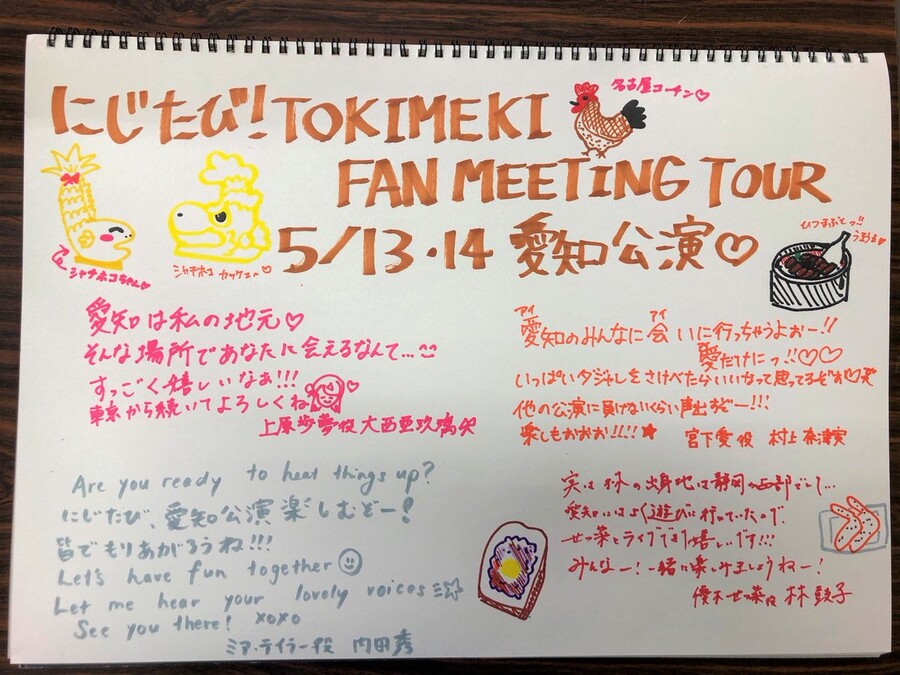 にじたび！TOKIMEKI
名古屋コーチン♡
FAN MEETING TOUR
5/13・14 愛知公演♡
シャチホコちゃん♡
シャチホコ カッケェ〜♡
ひつまぶしっ!!
うまうま
愛知は私の地元♡
そんな場所であなたに会えるなんて…
すっごく嬉しいなぁ!!!
東京から続いてよろしくね
上原歩夢役 大西亜玖璃
アイ アイ
愛知のみんなに会いに行っちゃうよぉー!!
愛だけにっ!!♡♡
いっぱいダジャレをさけべたらいいなって思ってるぞぉ♡笑
他の公演に負けないくらい声出すぞー!!!
楽しもおおお!!!!★
宮下愛役 村上奈津実
Are you ready to heat things up?
にじたび、愛知公演楽しむぞー！
皆でもりあがろうね!!!
Let's have fun together
Let me hear your lovely voices
See you there! xoxo
ミア・テイラー役 内田秀
実は林の出身地は静岡の西部でして…
愛知にはよく遊びに行っていたので
せつ菜とライブできて嬉しいです!!!
みんなー！一緒に楽しみましょうねー！
優木せつ菜役 林鼓子